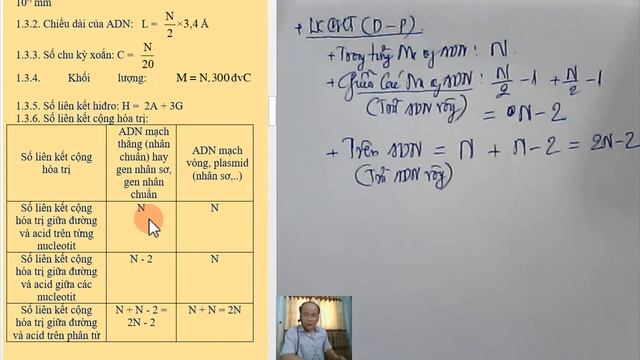 10⁻⁷ mm
1.3.2. Chiều dài của ADN: L = N/2 ×3,4 Å
1.3.3. Số chu kỳ xoắn: C = N/20
1.3.4. Khối lượng: M = N.300 đvC
1.3.5. Số liên kết hiđro: H = 2A + 3G
1.3.6. Số liên kết cộng hóa trị:
Số liên kết cộng
hóa trị
ADN mạch
thẳng (nhân
chuẩn) hay
gen nhân sơ,
gen nhân
chuẩn
ADN mạch
vòng, plasmid
(nhân sơ,..)
Số liên kết cộng
hóa trị giữa đường
và acid trên từng
nucleotit
N
N
Số liên kết cộng
hóa trị giữa đường
và acid giữa các
nucleotit
N - 2
N
Số liên kết cộng
hóa trị giữa đường
và acid trên phân tử
N + N - 2 =
2N - 2
N + N = 2N
+ LKCHT (D-P)
+ Trong từng Nu của ADN: N.
+ Giữa các Nu của ADN: N/2 -1 + N/2 -1
(Trừ ADN vòng) = N-2
+ Trên ADN = N + N-2 = 2N-2
(Trừ ADN vòng)